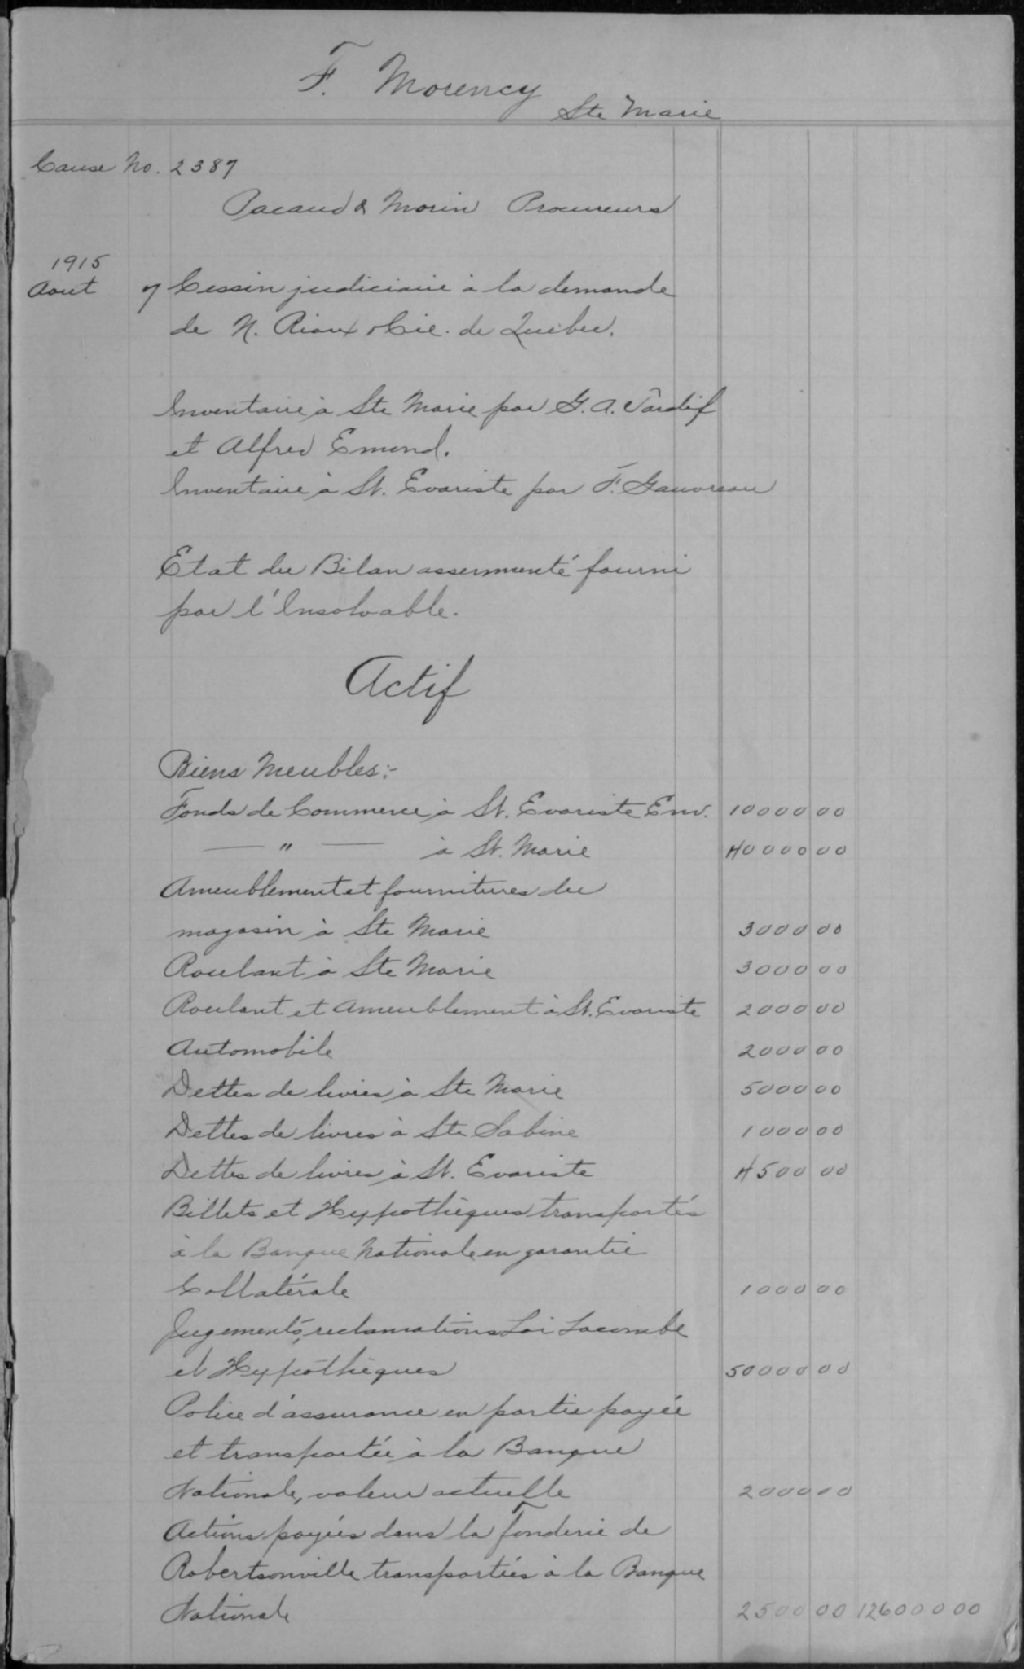 F. Morency
Ste Marie
Cause No. 2387
Pacaud & Morin Procureurs
1915
Aout 7 Cession judiciaire à la demande
de N. Rioux & Cie. de Québec.
Inventaire à Ste Marie par G. A. Tardif
et Alfred Emond.
Inventaire à St. Evariste par F. Gauvreau
Etat du Bilan assermenté fourni
par l'Insolvable.
Actif
Biens Meubles:-
Fonds de Commerce à St. Evariste Env. 10000 00
— " — à St. Marie 40000 00
Ameublement et fournitures du
magasin à Ste Marie 3000 00
Roulant à Ste Marie 3000 00
Roulant et Ameublement à St. Evariste 2000 00
Automobile 2000 00
Dettes de livres à Ste Marie 5000 00
Dettes de livres à Ste Sabine 1000 00
Dettes de livres à St. Evariste 4500 00
Billets et Hypothèques transportés
à la Banque Nationale en garantie
Collatérale 1000 00
Jugements, reclamations Loi Lacombe
et Hypothèques 50000 00
Police d'assurance en partie payée
et transportée à la Banque
Nationale, valeur actuelle 2000 00
Actions payées dans la Fonderie de
Robertsonville transportées à la Banque
Nationale 2500 00 126000 00